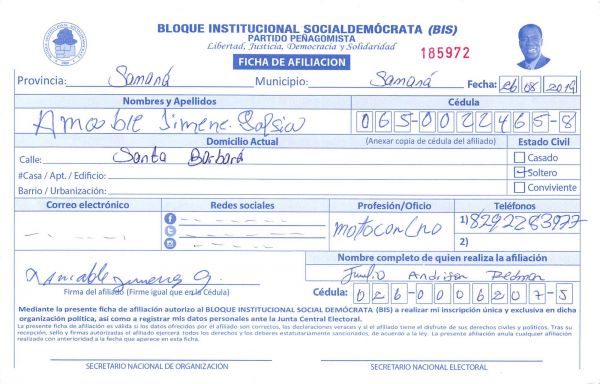 BLOQUE INSTITUCIONAL SOCIALDEMÓCRATA (BIS)
PARTIDO PEÑAGOMISTA
Libertad, Justicia, Democracia y Solidaridad
FICHA DE AFILIACION
185972
Provincia: Samaná Municipio: Samaná Fecha: 26 08 2019
Nombres y Apellidos Cédula
Amable Jimene 065-0022465-8
Domicilio Actual (Anexar copia de cédula del afiliado) Estado Civil
Calle: Santa Barbara Casado
#Casa / Apt. / Edificio: Soltero
Barrio / Urbanización: Conviviente
Correo electrónico Redes sociales Profesión/Oficio Teléfonos
motoconcho 1) 8292283977
2)
Nombre completo de quien realiza la afiliación
Amable Jimenez G. Andison
Firma del afiliado (Firme igual que en la Cédula) Cédula: 026-0006207-5
Mediante la presente ficha de afiliación autorizo al BLOQUE INSTITUCIONAL SOCIAL DEMÓCRATA (BIS) a realizar mi inscripción única y exclusiva en dicha
organización política, así como a registrar mis datos personales ante la Junta Central Electoral.
La presente ficha de afiliación es válida si los datos ofrecidos por el afiliado son correctos, las declaraciones veraces y si el afiliado tiene el disfrute de sus derechos civiles y políticos. Tras su
recepción, sello y firmas autorizadas el afiliado ejercerá todos los derechos y los deberes estatutariamente sancionados, de acuerdo a la ley. La presente afiliación anula cualquier afiliación
realizada con anterioridad a la fecha que aparece en esta ficha.
SECRETARIO NACIONAL DE ORGANIZACIÓN SECRETARIO NACIONAL ELECTORAL